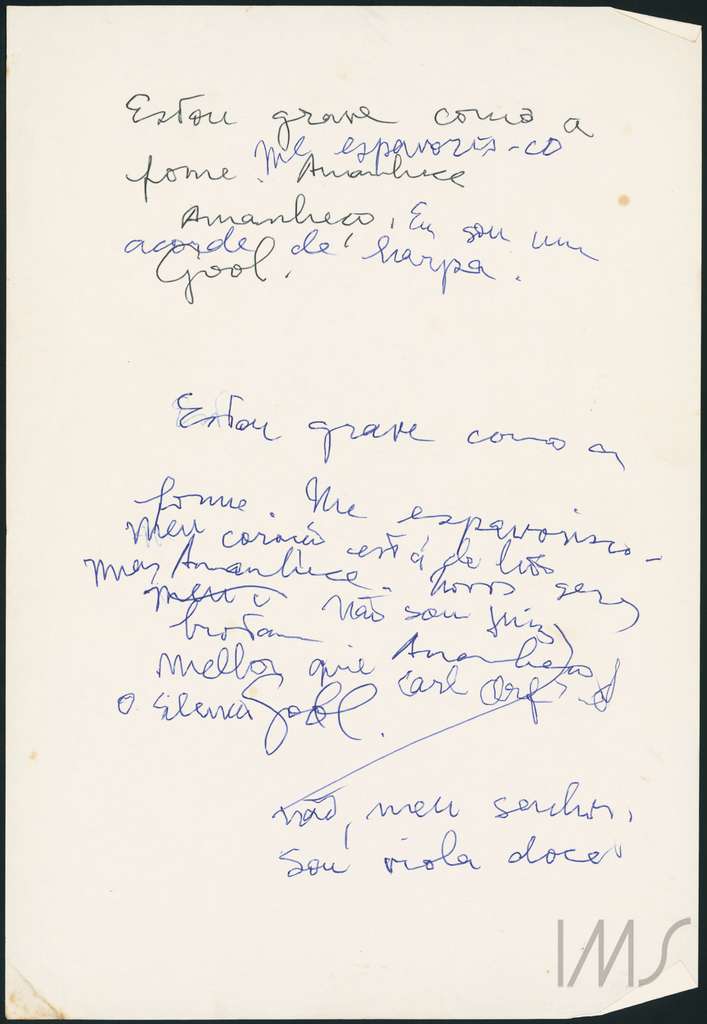 Estou grave como a
fome. Me espavoris-co
Amanhece
Amanheço, Eu sou um
acorde de harpa.
Gool.
Estou grave como a
fome. Me espavorisco-
meu está de
mas Amanhece. Novos
meu não sou juiz
brotam
melhor que Amanheço
Carl Orf
O silencio Gool.
não, meu senhor,
sou viola doce
IMS